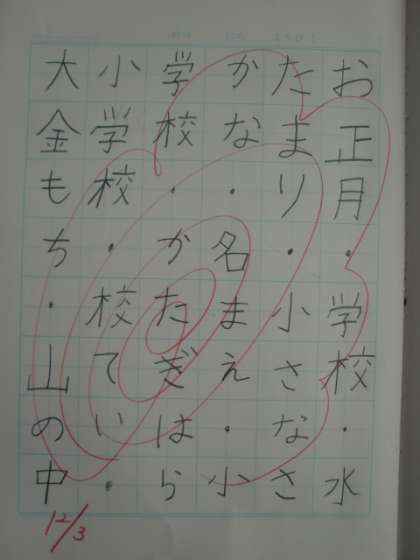 お正月・学校・水
たまり・小さなさ
かな・名まえ・小
学校・かたぎはら
小学校・校てい・
大金もち・山の中
12/3